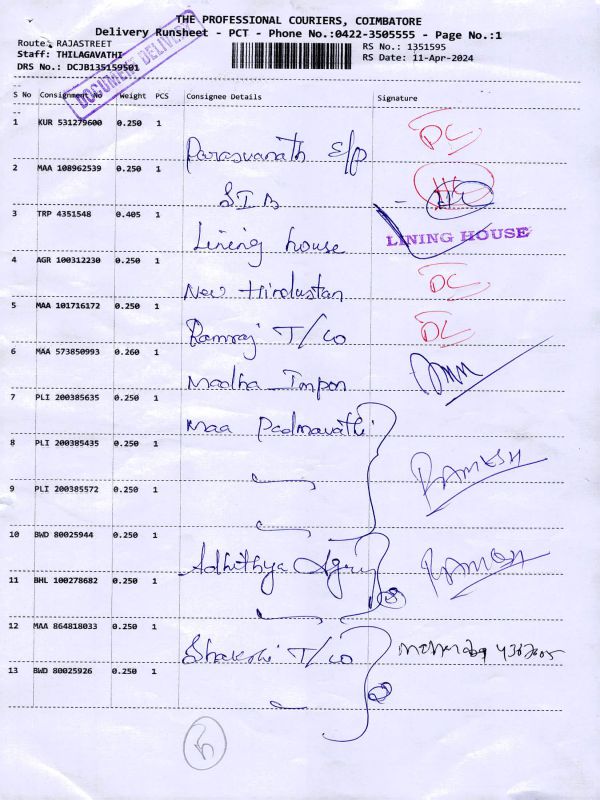 THE PROFESSIONAL COURIERS, COIMBATORE
Delivery Runsheet - PCT - Phone No.:0422-3505555 - Page No.:1
Route: RAJASTREET
RS No.: 1351595
Staff: THILAGAVATHI
RS Date: 11-Apr-2024
DRS No.: DCJB135159501
DOCUMENT DELIVERY
S No Consignment No Weight PCS Consignee Details Signature
1 KUR 531279600 0.250 1 Paraswanath E/p DC
2 MAA 108962539 0.250 1 S I B
3 TRP 4351548 0.405 1 Lining house LINING HOUSE
4 AGR 100312230 0.250 1 New Hindustan DC
5 MAA 101716172 0.250 1 Ramraj T/co DC
6 MAA 573850993 0.260 1 Madha Impon
7 PLI 200385635 0.250 1 Maa Padmavathi
8 PLI 200385435 0.250 1 RAMESH
9 PLI 200385572 0.250 1
10 BWD 80025944 0.250 1 Adhithya Agency RAMESH
11 BHL 100278682 0.250 1
12 MAA 864818033 0.250 1 Shakshi T/co
13 BWD 80025926 0.250 1